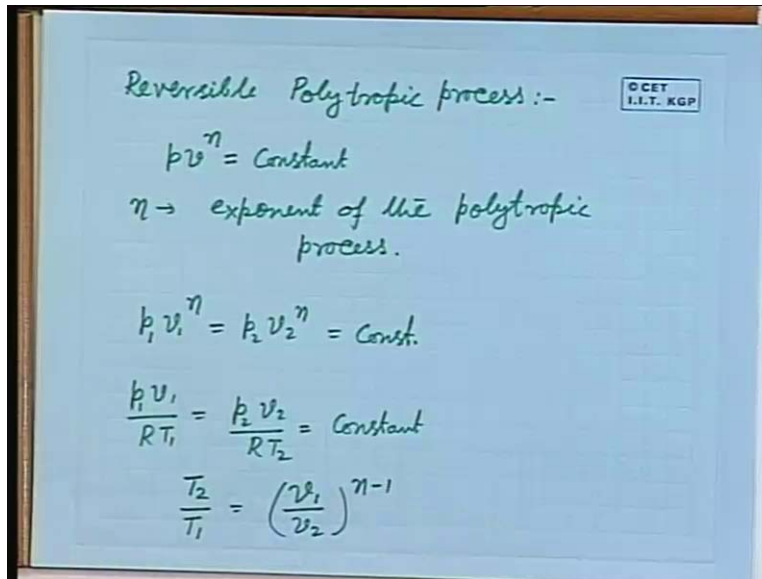 Reversible Polytropic process:-
© CET
I.I.T. KGP
pvⁿ = Constant
n → exponent of the polytropic
process.
p₁ v₁ⁿ = p₂ v₂ⁿ = Const.
p₁v₁/RT₁ = p₂v₂/RT₂ = Constant
T₂/T₁ = (v₁/v₂)ⁿ⁻¹